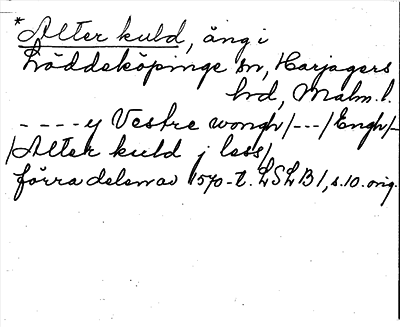 *Alter kuld, äng i
Löddeköpinge sn, Harjagers
hd, Malm. l.
- - - - y Vestre wongh /---/ Engh/-
/Alter kuld j less/
förra delen av 1570-t. LSLB1, s. 10. orig.